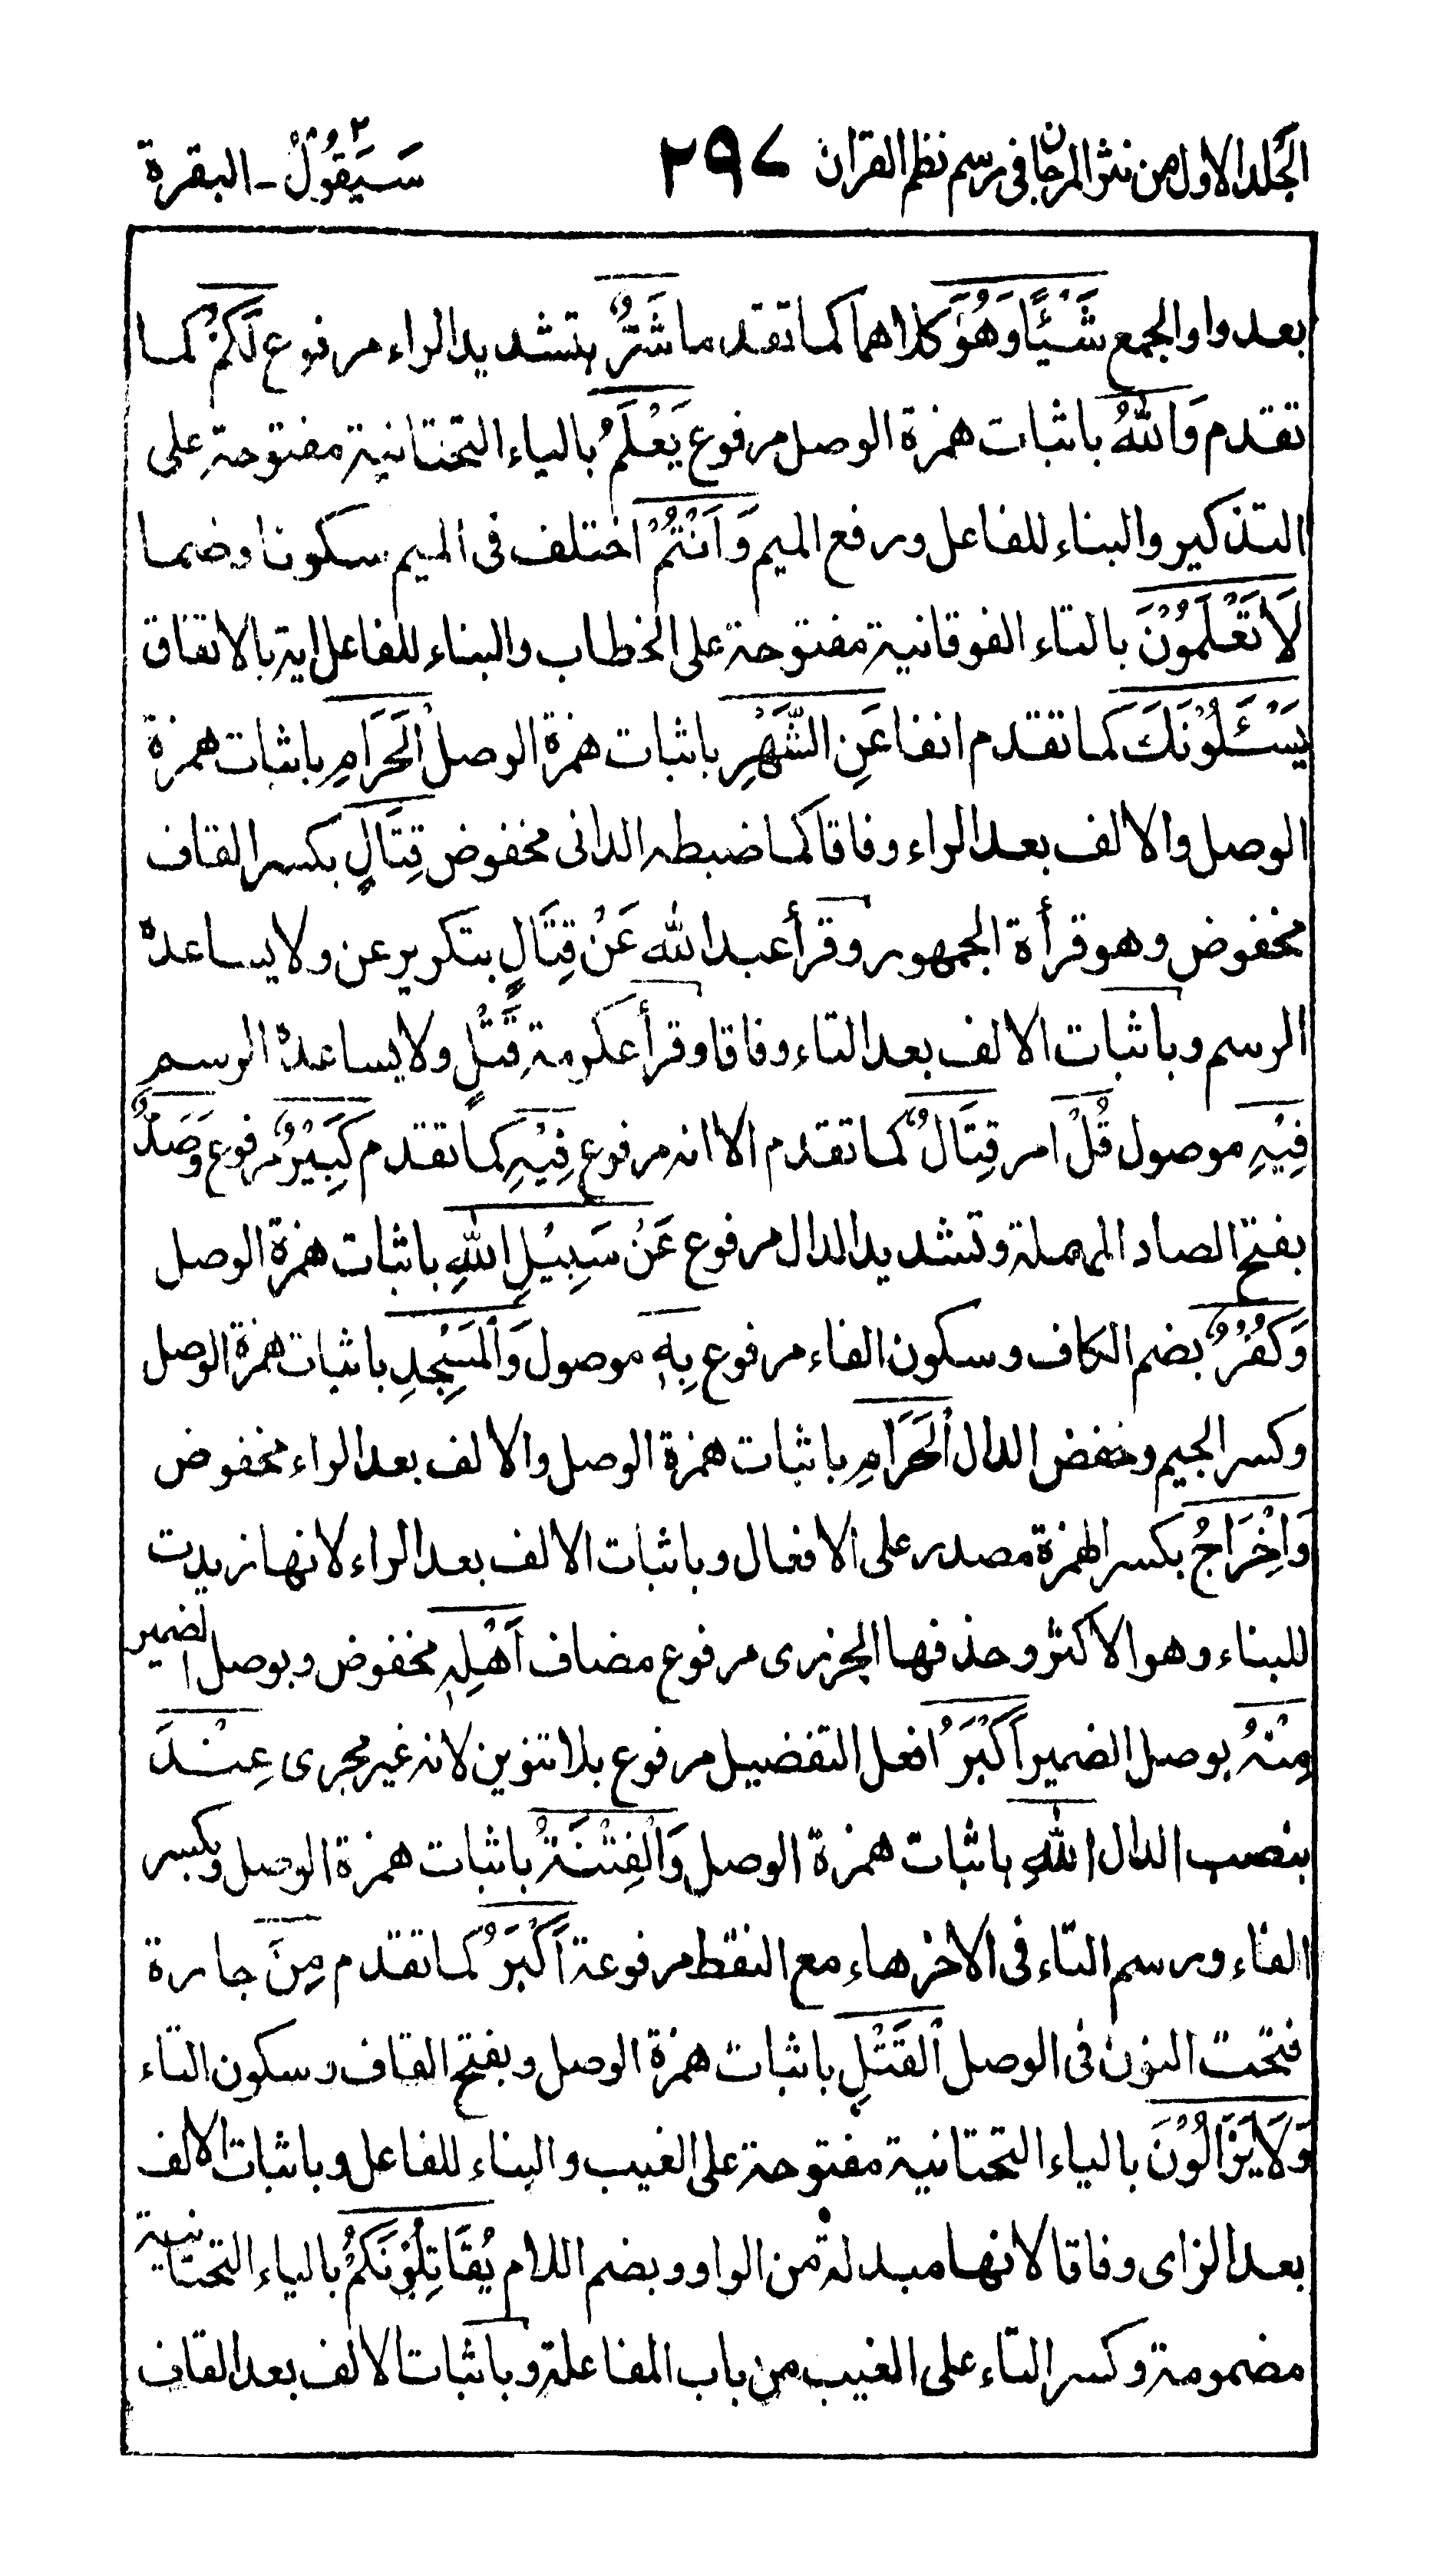 الجلد الاول من نثر المرجان فى رسم نظم القران ٢٩٧ سَيَقُوْلُ ٢ - البقرة
بعد واو الجمع شَيْـًٔا وَهُوَ كلاهما كما تقدما شَرٌّ بتشديد الراء مرفوع لَكُمْ كما
تقدم وَاللّٰهُ باثبات همزة الوصل مرفوع يَعْلَمُ بالياء التحتانية مفتوحة على
التذكير والبناء للفاعل ورفع الميم وَاَنْتُمْ اختلف فى الميم سكونا وضما
لَا تَعْلَمُوْنَ بالتاء الفوقانية مفتوحة على الخطاب والبناء للفاعل اية بالاتفاق
يَسْـَٔلُوْنَكَ كما تقدم انفا عَنِ الشَّهْرِ باثبات همزة الوصل الْحَرَامِ باثبات همزة
الوصل والالف بعد الراء وفاقا كما ضبطه الدانى مخفوض قِتَالٍ بكسر القاف
مخفوض وهو قرأة الجمهور وقرأ عبد الله عَنْ قِتَالٍ بتكرير عن ولا يساعده
الرسم وباثبات الالف بعد التاء وفاقا وقرأ عكرمة قَتْلٍ ولا يساعده الرسم
فِيْهِ موصول قُلْ امر قِتَالٌ كما تقدم الا انه مرفوع فِيْهِ كما تقدم كَبِيْرٌ مرفوع وَصَدٌّ
بفتح الصاد المهملة وتشديد الدال مرفوع عَنْ سَبِيْلِ اللّٰهِ باثبات همزة الوصل
وَكُفْرٌ بضم الكاف وسكون الفاء مرفوع بِهٖ موصول وَالْمَسْجِدِ باثبات همزة الوصل
وكسر الجيم وخفض الدال الْحَرَامِ باثبات همزة الوصل والالف بعد الراء مخفوض
وَاِخْرَاجُ بكسر الهمزة مصدر على الافعال وباثبات الالف بعد الراء لانها زيدت
للبناء وهو الاكثر وحذفها الجزرى مرفوع مضاف اَهْلِهٖ مخفوض وبوصل الضمير
مِنْهُ بوصل الضمير اَكْبَرُ افعل التفضيل مرفوع بلا تنوين لانه غير مجرى عِنْدَ
بنصب الدال اللّٰهِ باثبات همزة الوصل وَالْفِتْنَةُ باثبات همزة الوصل وبكسر
الفاء ورسم التاء فى الاخر هاء مع النقط مرفوعة اَكْبَرُ كما تقدم مِنَ جارة
فتحت النون فى الوصل الْقَتْلِ باثبات همزة الوصل وبفتح القاف وسكون التاء
وَلَا يَزَالُوْنَ بالياء التحتانية مفتوحة على الغيب والبناء للفاعل وباثبات الالف
بعد الزاى وفاقا لانها مبدلة من الواو وبضم اللام يُقَاتِلُوْنَكُمْ بالياء التحتانية
مضمومة وكسر التاء على الغيب من باب المفاعلة وباثبات الالف بعد القاف